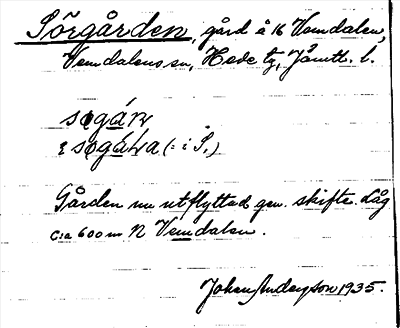 Sörgården, gård å 16 Vemdalen,
Vemdalens sn, Hede tg, Jämtl. l.
søgáɳ
i søgáɳa (: i S.)
Gården nu utflyttad gen. skifte. Låg
c:a 600 m N Vemdalen.
Johan Anderzson 1935.